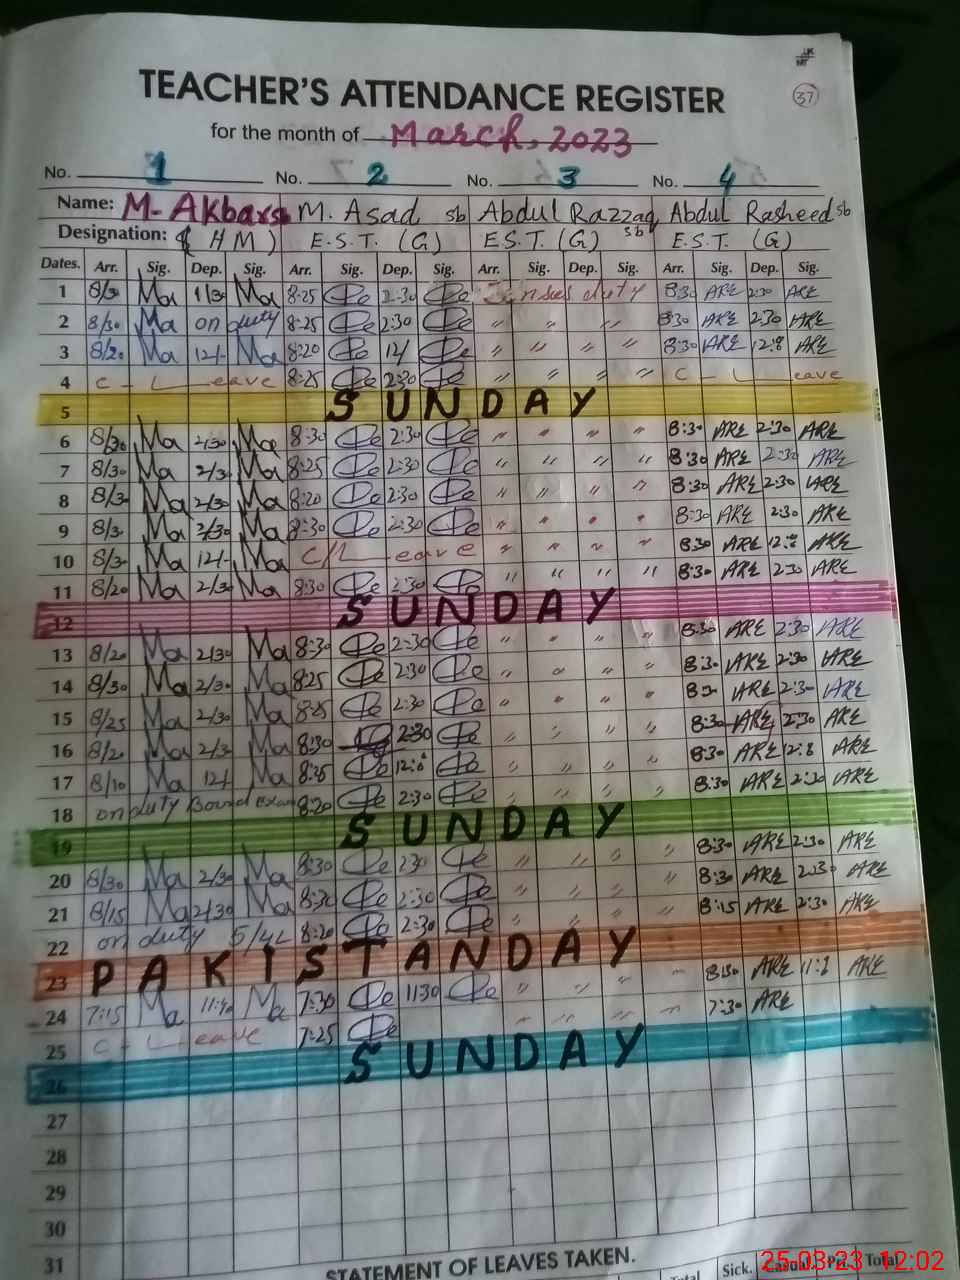 37
TEACHER'S ATTENDANCE REGISTER
for the month of March, 2023
No. 1 No. 2 No. 3 No. 4
Name: M. Asad sb Abdul Razzaq sb Abdul Rasheed sb
Designation: (HM) E.S.T. (G) E.S.T. (G) E.S.T. (G)
Dates. Arr. Sig. Dep. Sig. Arr. Sig. Dep. Sig. Arr. Sig. Dep. Sig. Arr. Sig. Dep. Sig.
1 8/30 Ma 1/30 Ma 8:25 2:30 duty 8:30 ARE 2:30 ARE
2 8/30 Ma on duty 8:25 2:30 " " " 8:30 ARE 2:30 ARE
3 8/20 Ma 12/- Ma 8:20 12/ " " " " 8:30 ARE ARE
4 C - Leave 8:25 2:30 " " " " C - Leave
5 SUNDAY
6 8/30 Ma 2/30 Ma 8:30 2:30 " " " " 8:30 ARE 2:30 ARE
7 8/30 Ma 2/30 Ma 8:25 2:30 " " " " 8:30 ARE 2:30 ARE
8 8/30 Ma 2/30 Ma 8:20 2:30 " " " " 8:30 ARE 2:30 ARE
9 8/30 Ma 2/30 Ma 8:30 2:30 " " " " 8:30 ARE 2:30 ARE
10 8/30 Ma 12/- Ma C/Leave " " " " 8:30 ARE ARE
11 8/20 Ma 2/30 Ma 8:30 2:30 " " " " 8:30 ARE 2:30 ARE
12 SUNDAY
13 8/20 Ma 2/30 Ma 8:30 2:30 " " " " 8:30 ARE 2:30 ARE
14 8/30 Ma 2/30 Ma 8:25 2:30 " " " " 8:30 ARE 2:30 ARE
15 8/25 Ma 2/30 Ma 8:25 2:30 " " " " 8:30 ARE 2:30 ARE
16 8/20 Ma 2/30 Ma 8:30 2:30 " " " " 8:30 ARE 2:30 ARE
17 8/10 Ma 12/- Ma 8:25 " " " " 8:30 ARE ARE
18 on duty Board Exam 8:20 2:30 " " " " 8:30 ARE 2:30 ARE
19 SUNDAY
20 8/30 Ma 2/30 Ma 8:30 2:30 " " " " 8:30 ARE 2:30 ARE
21 8/15 Ma 2/30 Ma 8:30 2:30 " " " " 8:30 ARE 2:30 ARE
22 on duty 8:20 2:30 " " " " 8:15 ARE 2:30 ARE
23 PAKISTAN DAY
24 7:15 Ma Ma 7:30 11:30 " " " " 8:30 ARE ARE
25 C - Leave 7:25 " " " " 7:30 ARE
26 SUNDAY
27
28
29
30
31
STATEMENT OF LEAVES TAKEN.
Total Sick. Casual. Pri. Total
25.03.23 12:02